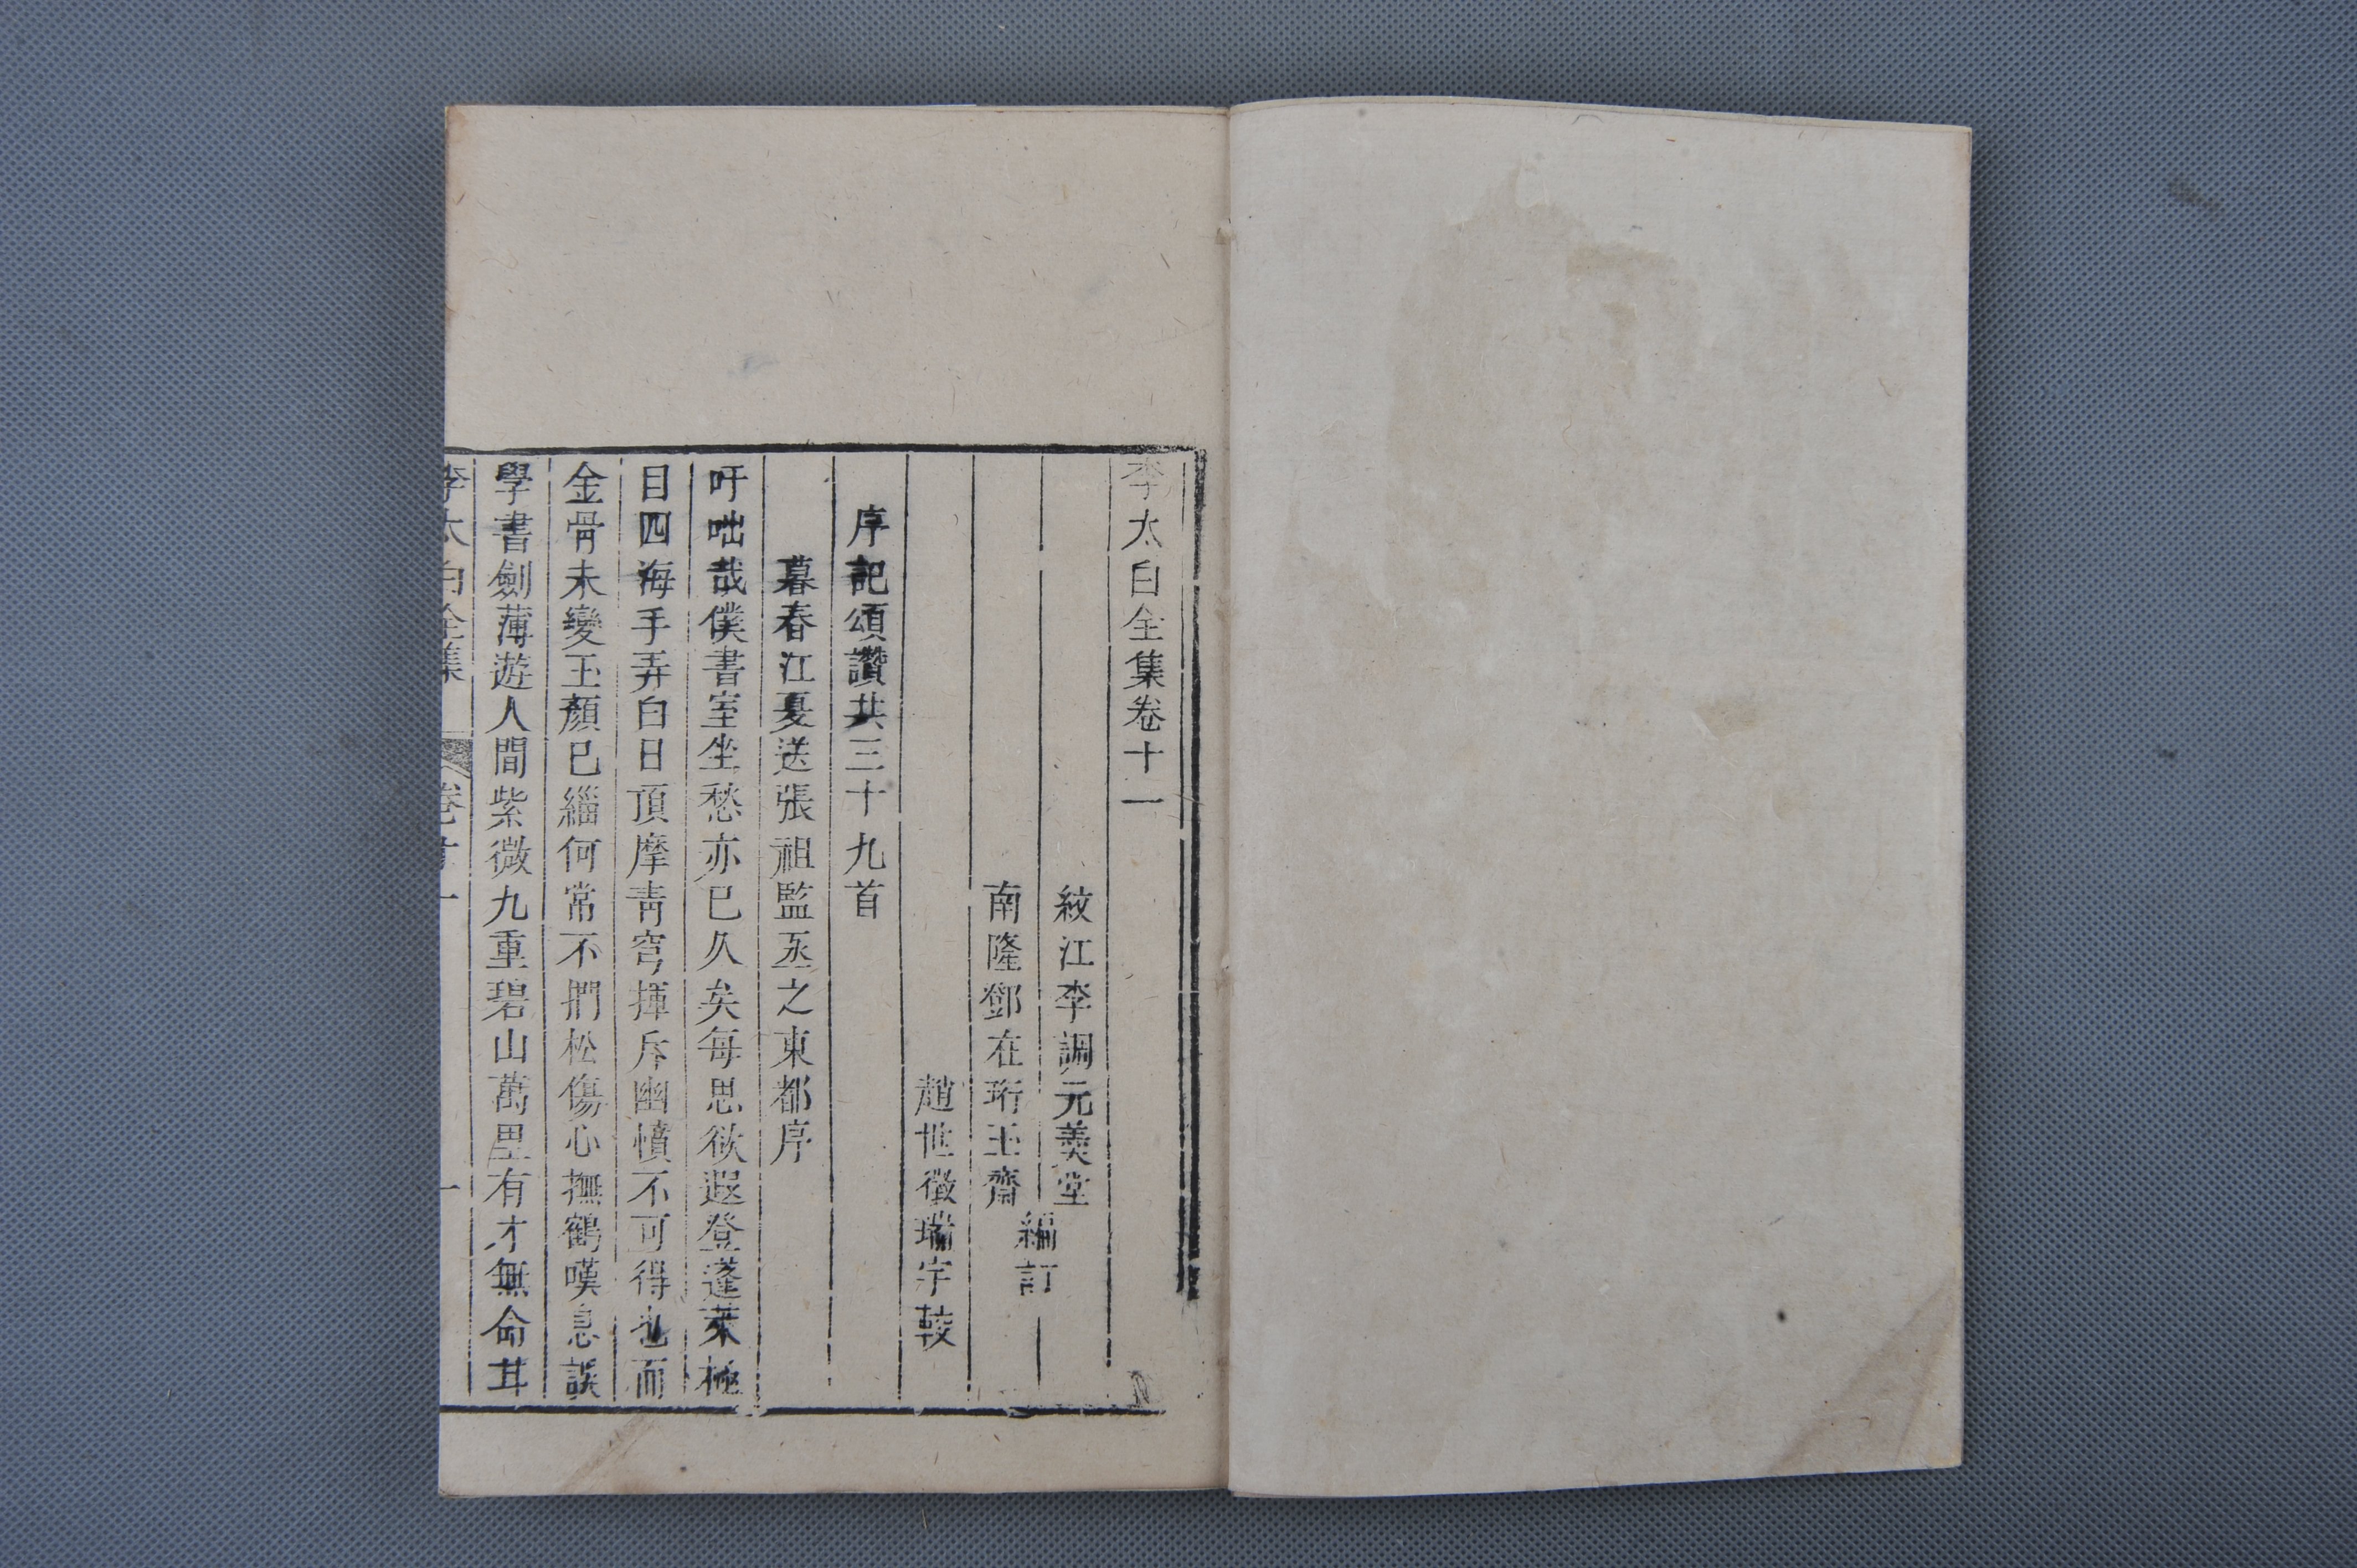 李太白全集卷十一
紋江李調元羹堂
南隆鄧在珩玉齋
編訂
趙世徵瑞宇較
序記頌讚共三十九首
暮春江夏送張祖監丞之東都序
吁咄哉僕書室坐愁亦已久矣每思欲遐登蓬萊極
目四海手弄白日頂摩青穹揮斥幽憤不可得也而
金骨未變玉顏已緇何常不捫松傷心撫鶴嘆息誤
學書劍薄遊人間紫微九重碧山萬里有才無命甘
李太白全集 卷 一